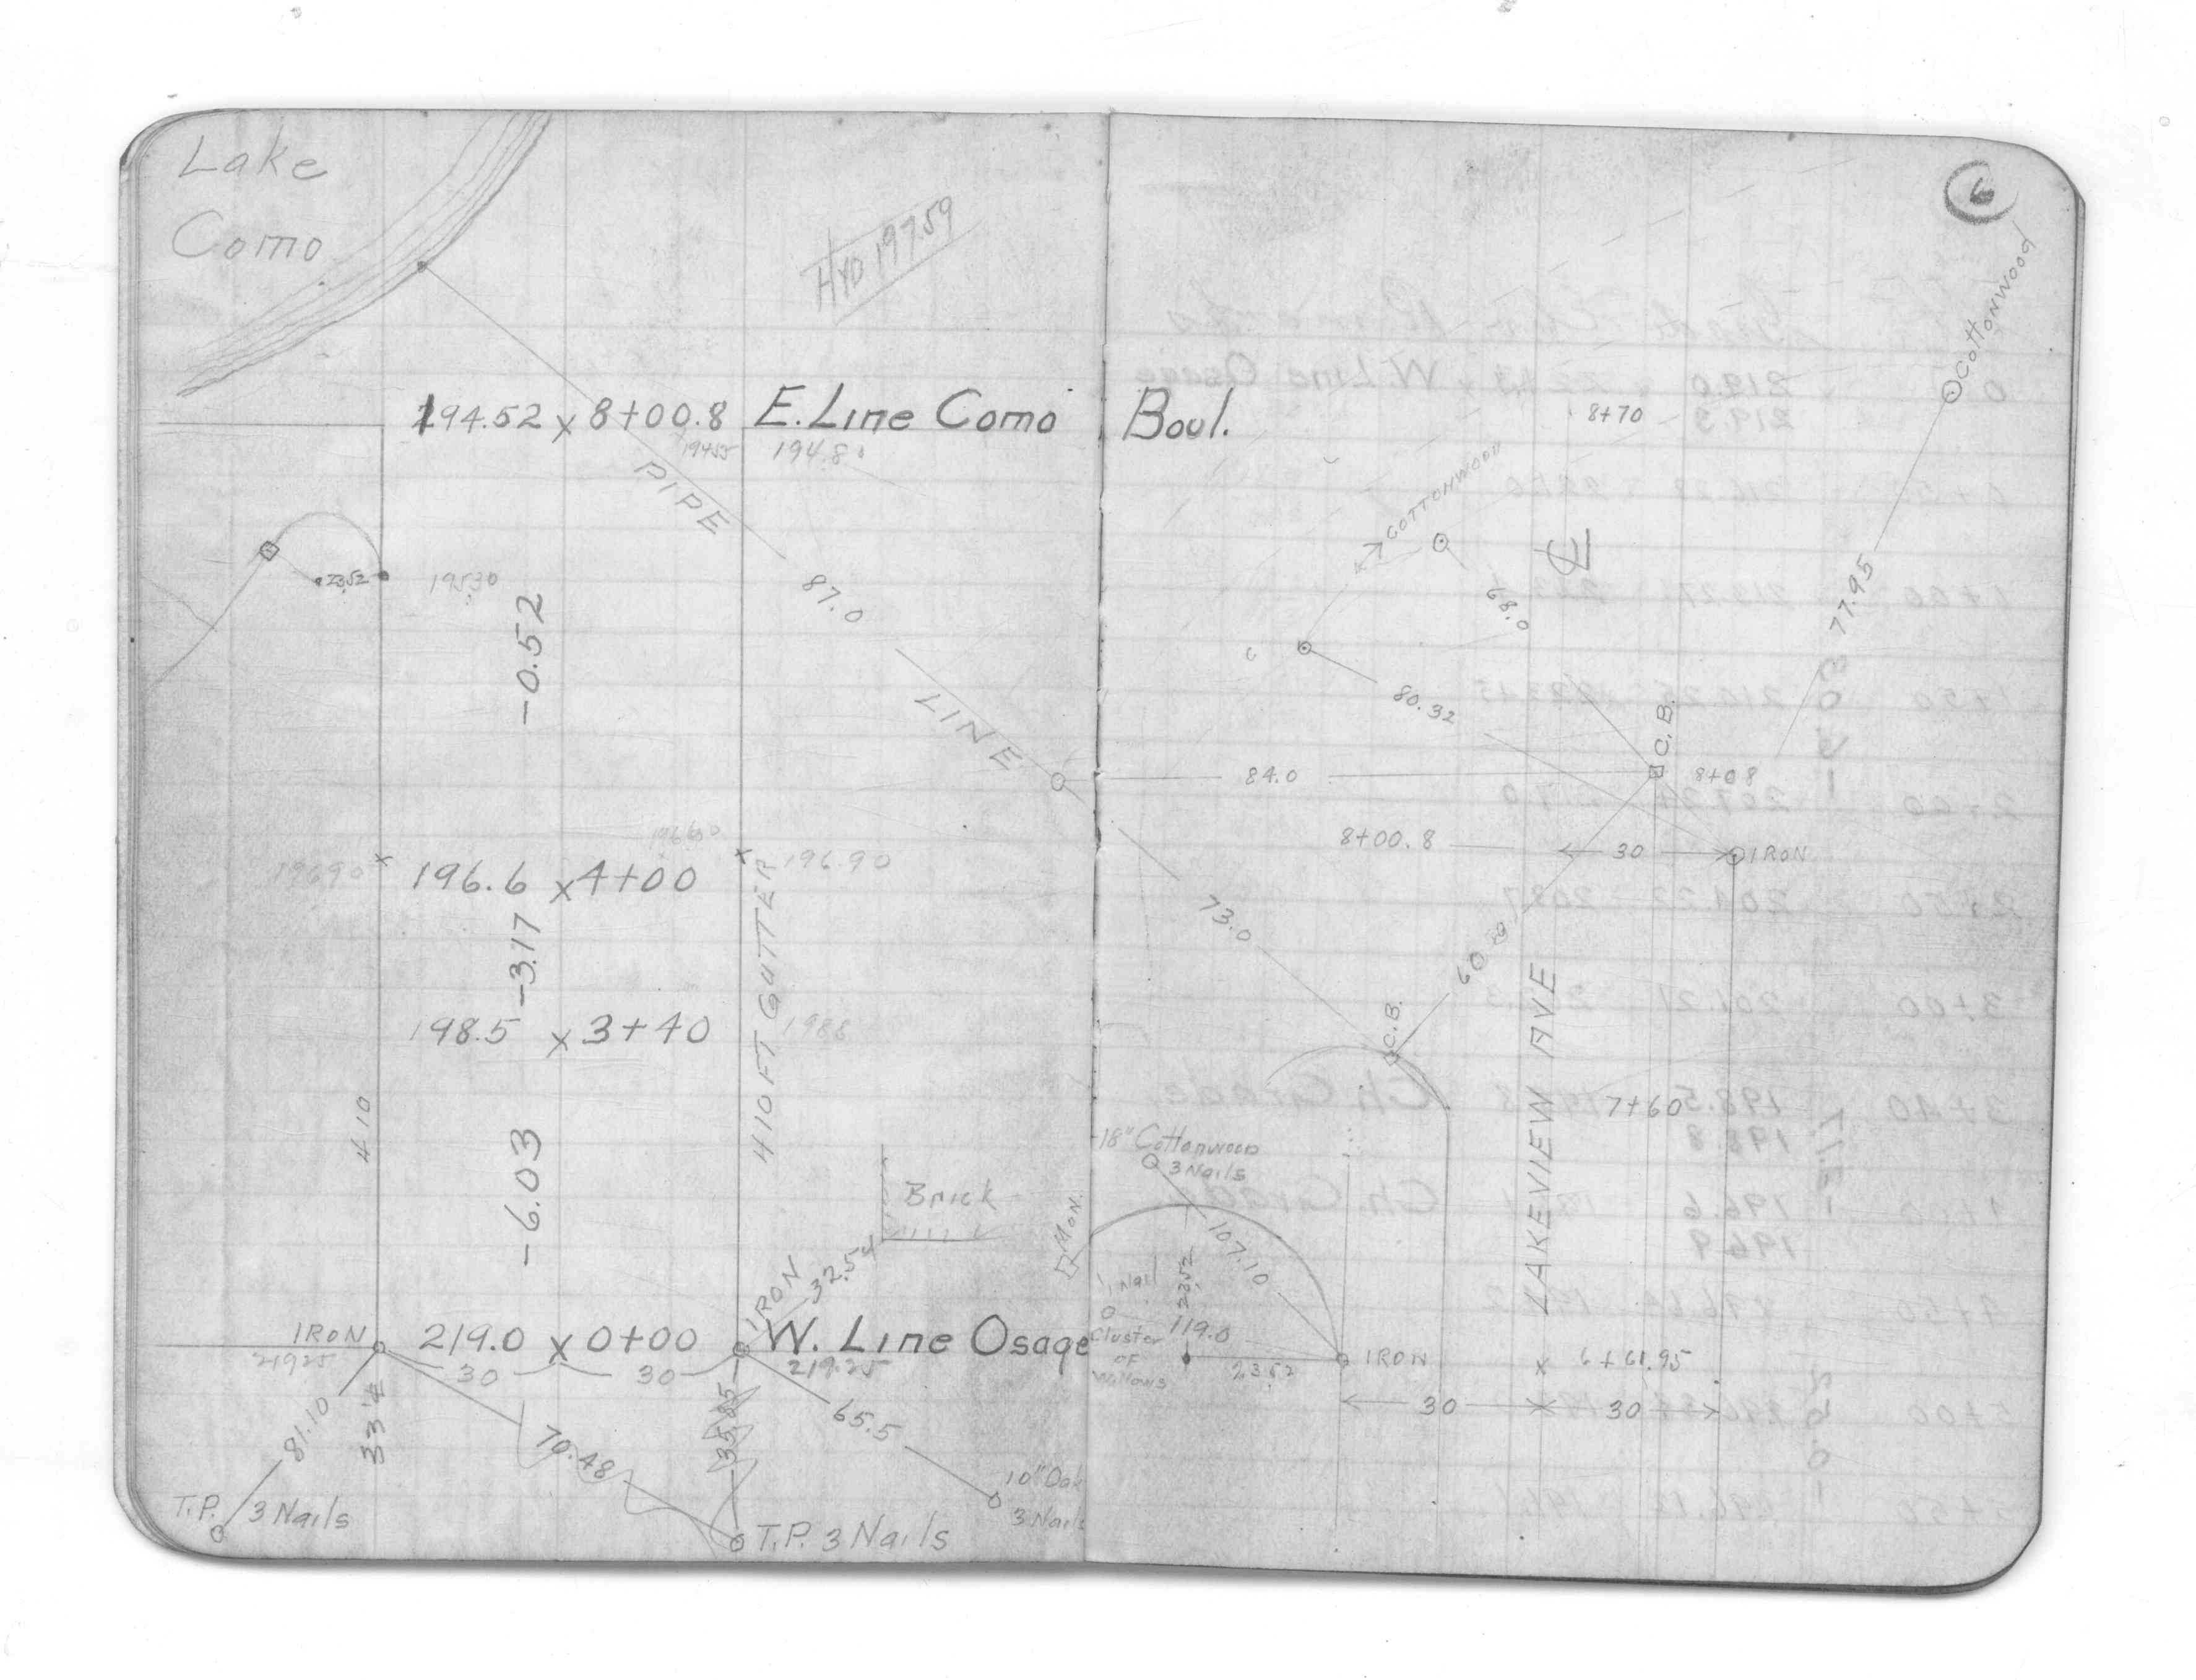 Lake
Como
HYD 197.59
194.52 x 8+00.8 E. Line Como Boul.
194.55 194.8
PIPE
87.0
LINE
23.52
195.30
-0.52
196.60
196.90
196.6 x 4+00
196.90
-3.17
198.5 x 3+40
198.8
410 FT GUTTER
410
-6.03
Brick
32.54
IRON
IRON
219.0 x 0+00
W. Line Osage
219.25
30
30
219.25
81.10
33.4
70.48
35.85
65.5
10" Oak
3 Nails
T.P.
3 Nails
T.P. 3 Nails
6
Cottonwood
8+70
COTTONWOOD
CL
68.0
77.95
80.32
C.B.
84.0
8+08
8+00.8
30
IRON
73.0
60
C.B.
LAKEVIEW AVE
7+60
18" Cottonwood
3 Nails
MON.
107.10
1 Nail
23.52
Cluster
OF
Willows
119.0
23.52
IRON
x 6+61.95
30
30